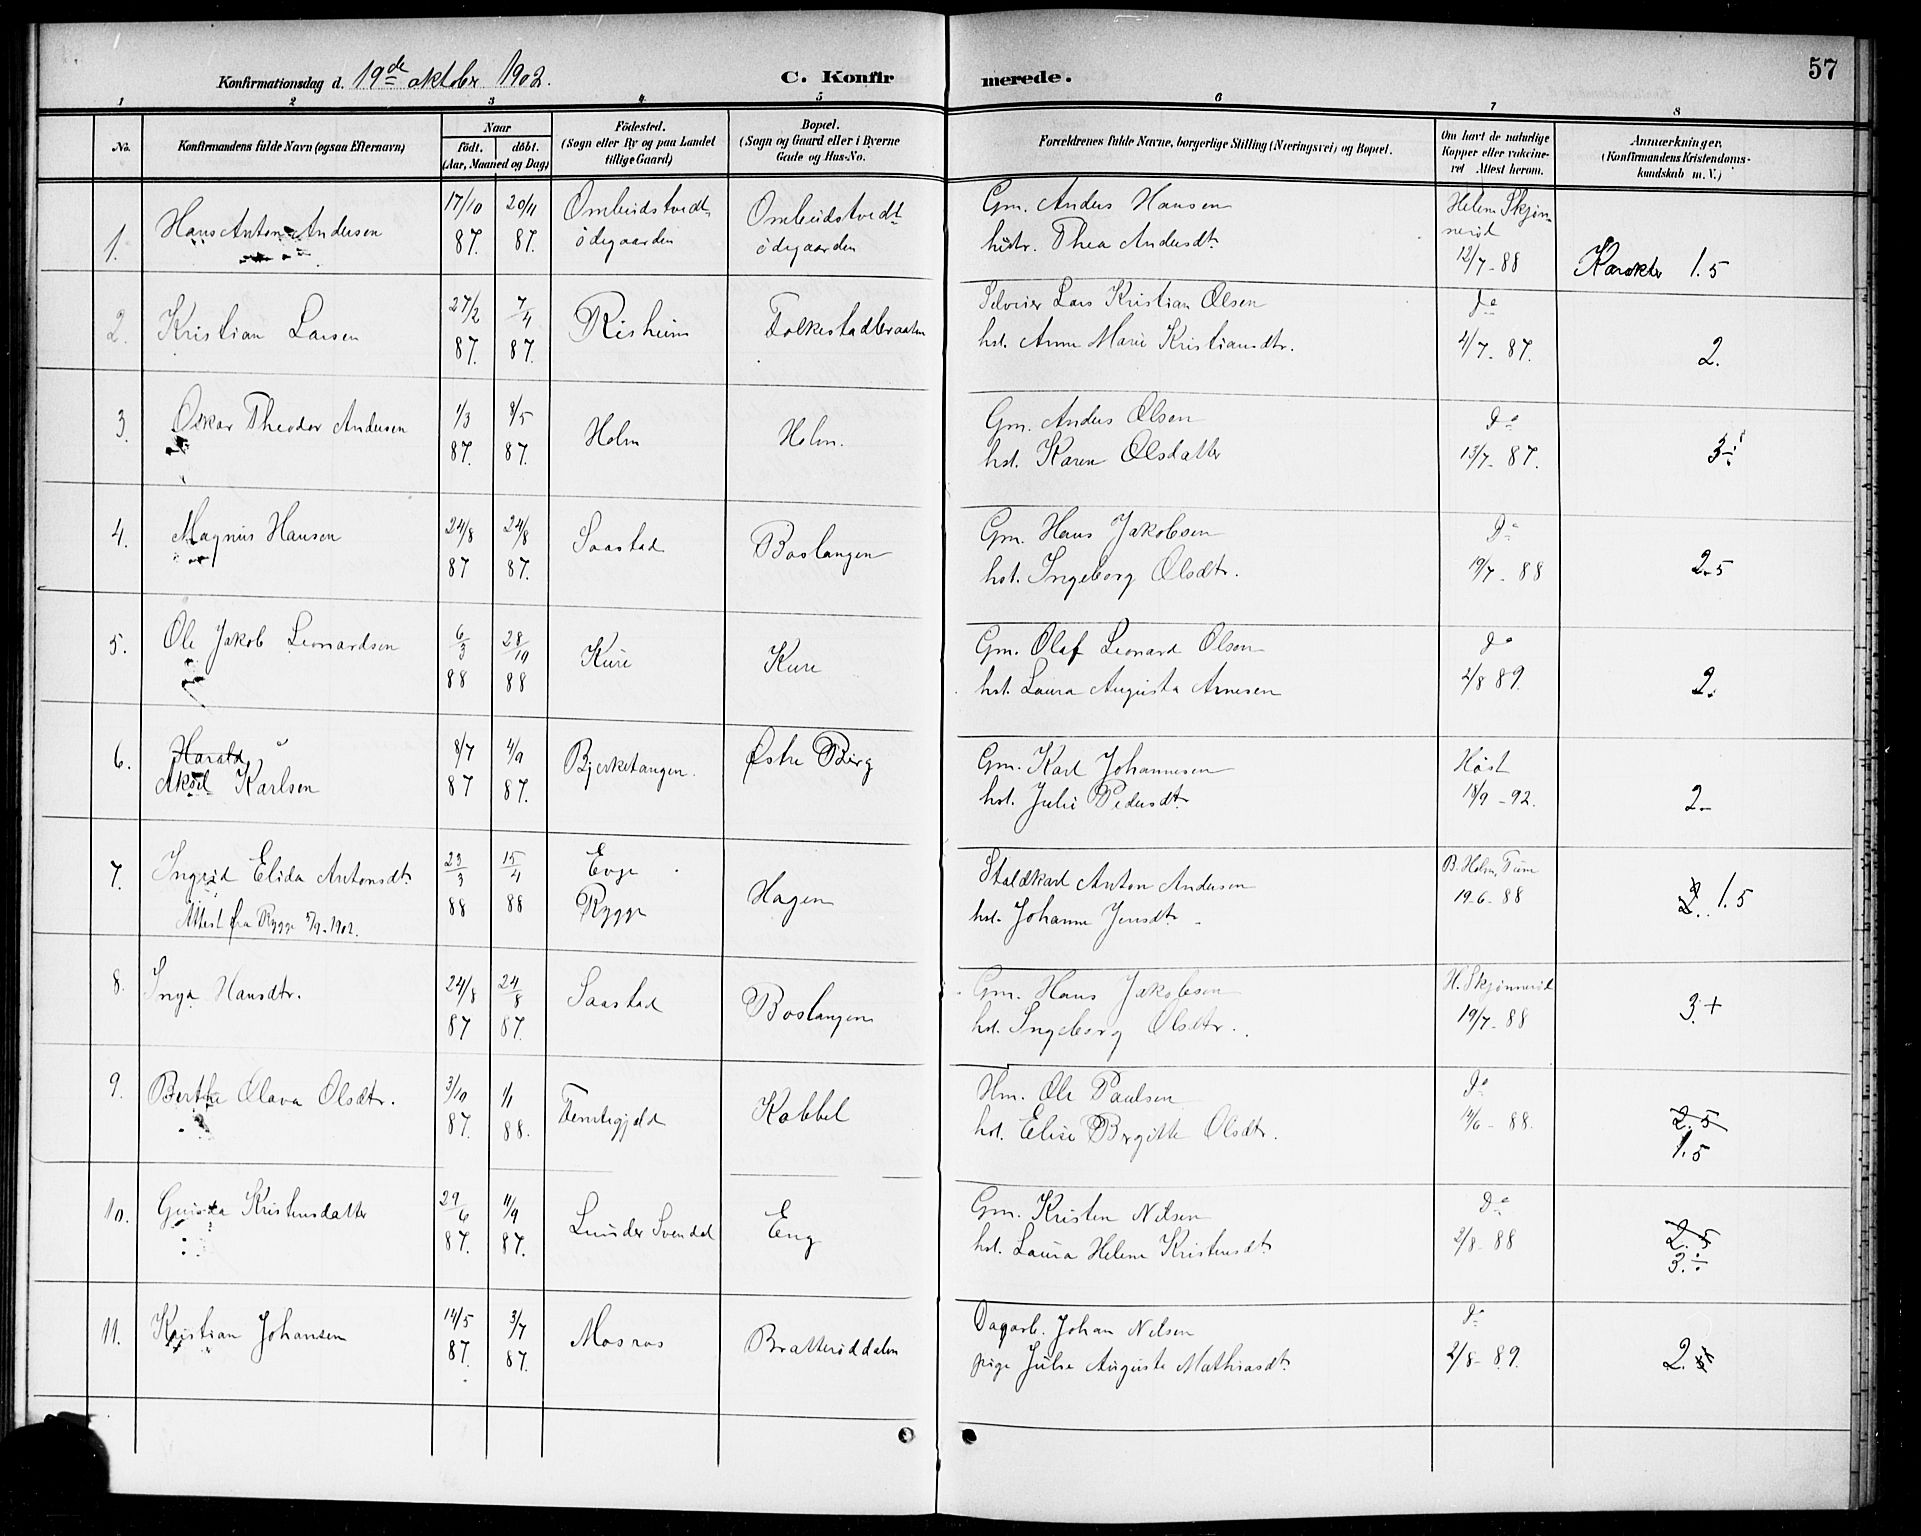 57
Konfirmationsdag d. 19de oktober 1902.
C. Konfirmerede.
1 2 3 4 5 6 7 8
No.
Konfirmandens fulde Navn (ogsaa Efternavn)
Naar
födt. döbt.
(Aar, Maaned og Dag)
Födested.
(Sogn eller By og paa Landet
tillige Gaard)
Bopæl.
(Sogn og Gaard eller i Byerne
Gade og Hus-No.
Forældrenes fulde Navne, borgerlige Stilling (Næringsvei) og Bopæl.
Om havt de naturlige
Kopper eller vakcine-
ret Attest herom.
Anmærkninger,
(Konfirmandens Kristendoms-
kundskab m. V.)
1. Hans Anton Andersen
17/10 87. 20/11 87.
Ombudstvedt
ödegaarden
Ombudstvedt
ödegaarden
Gm. Anders Hansen
hustr. Thea Andersdt.
Helene Skjön-
neröd
12/7-88
Karakter 1.5
2. Kristian Larsen
27/2 87. 7/4 87.
Risheim
Folkestadbraaten
Selveier Lars Kristian Olsen
hst. Anne Marie Kristiansdtr.
Do
4/7-87.
2.
3. Oskar Theodor Andersen
1/3 87. 8/5 87.
Holm
Holm.
Gm. Anders Olsen
hst. Karen Olsdatter
Do
13/7-87.
3÷
4. Magnus Hansen
24/8 87 24/8 87.
Saastad
Boslangen
Gm. Hans Jakobsen
hst. Ingeborg Olsdtr.
Do
19/7-88
2-5
5. Ole Jakob Leonardsen
6/3 88 28/10 88
Kure
Kure
Gm. Olaf Leonard Olsen
hst. Laura Augusta Arnesen
Do
2/8 89.
2.
6. Harald
Aksel Karlsen
8/7 87 4/9 87.
Bjerketangen.
Östre Berg
Gm. Karl Johannesen
hst. Julie Pedersdt.
Höst
18/9-92.
2-
7. Ingrid Elida Antonsdt.
Attest fra Rygge 5/9-1902.
23/3 88 15/4 88
Evje
Rygge
Hagen
Staldkarl Anton Andersen
hst. Johanne Jensdtr
B. Holm, Tune
19-6-88
2. 1.5
8. Inga Hansdtr.
24/8 87 24/8 87.
Saastad
Boslangen
Gm. Hans Jakobsen
hst. Ingeborg Olsdtr.
H. Skjönneröd
19/7-88
3.+
9. Berthe Olava Olsdtr.
3/10 87. 1/1 88.
Kabbel
Hm. Ole Paulsen
hst. Elise Brgitte Olsdtr.
Do
14/6-88.
2.5
1.5
10. Kristensdatter
29/6 87. 11/9 87.
Lunder Svendal
Eng
Gm. Kristen Nilsen
hst. Laura Helene Kristensdt.
Do
2/8-88
2.5
3.÷
11. Kristian Johansen
14/5 87. 3/7 87.
Mosros
Bratteröddalen
Dagarb. Johan Nilsen
pige Julie Auguste Mathiasdt.
Do
2/8-89.
2.